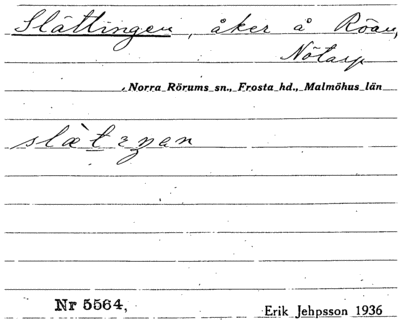 Slättingen, åker å Röan,
Nötarp
Norra Rörums sn., Frosta hd., Malmöhus län
Nr 5564,
Erik Jehpsson 1936